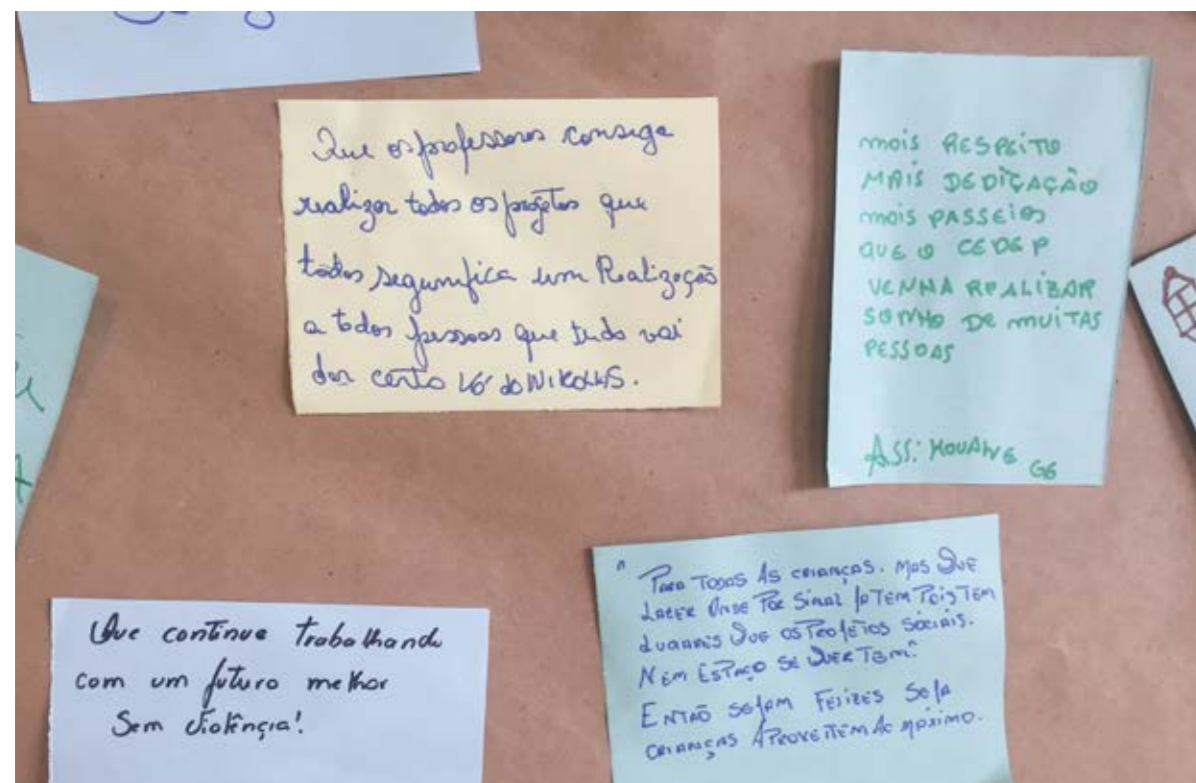 Que os professores consiga
realizar todos os projetos que
todos segunifica um Realização
a todos pessoas que tudo vai
dar certo Vó do NIKOLLAS.
mais RESPEITO
MAIS DEDIÇAÇÃO
mais PASSEIOS
QUE O CEDEP
VENHA REALIZAR
SONHO DE MUITAS
PESSOAS
ASS: KOUANE GG
Que continue trabalhando
com um futuro melhor
Sem violência!
"PARA TODAS AS CRIANÇAS. MAS QUE
LAZER ONDE POR SINAL JÁ TEM POIS TEM
LUGARES QUE OS PROJETOS SOCIAIS.
NEM ESPAÇO SE QUER TEM."
ENTÃO SEJAM FELIZES SEJA
CRIANÇAS APROVEITEM AO MÁXIMO.